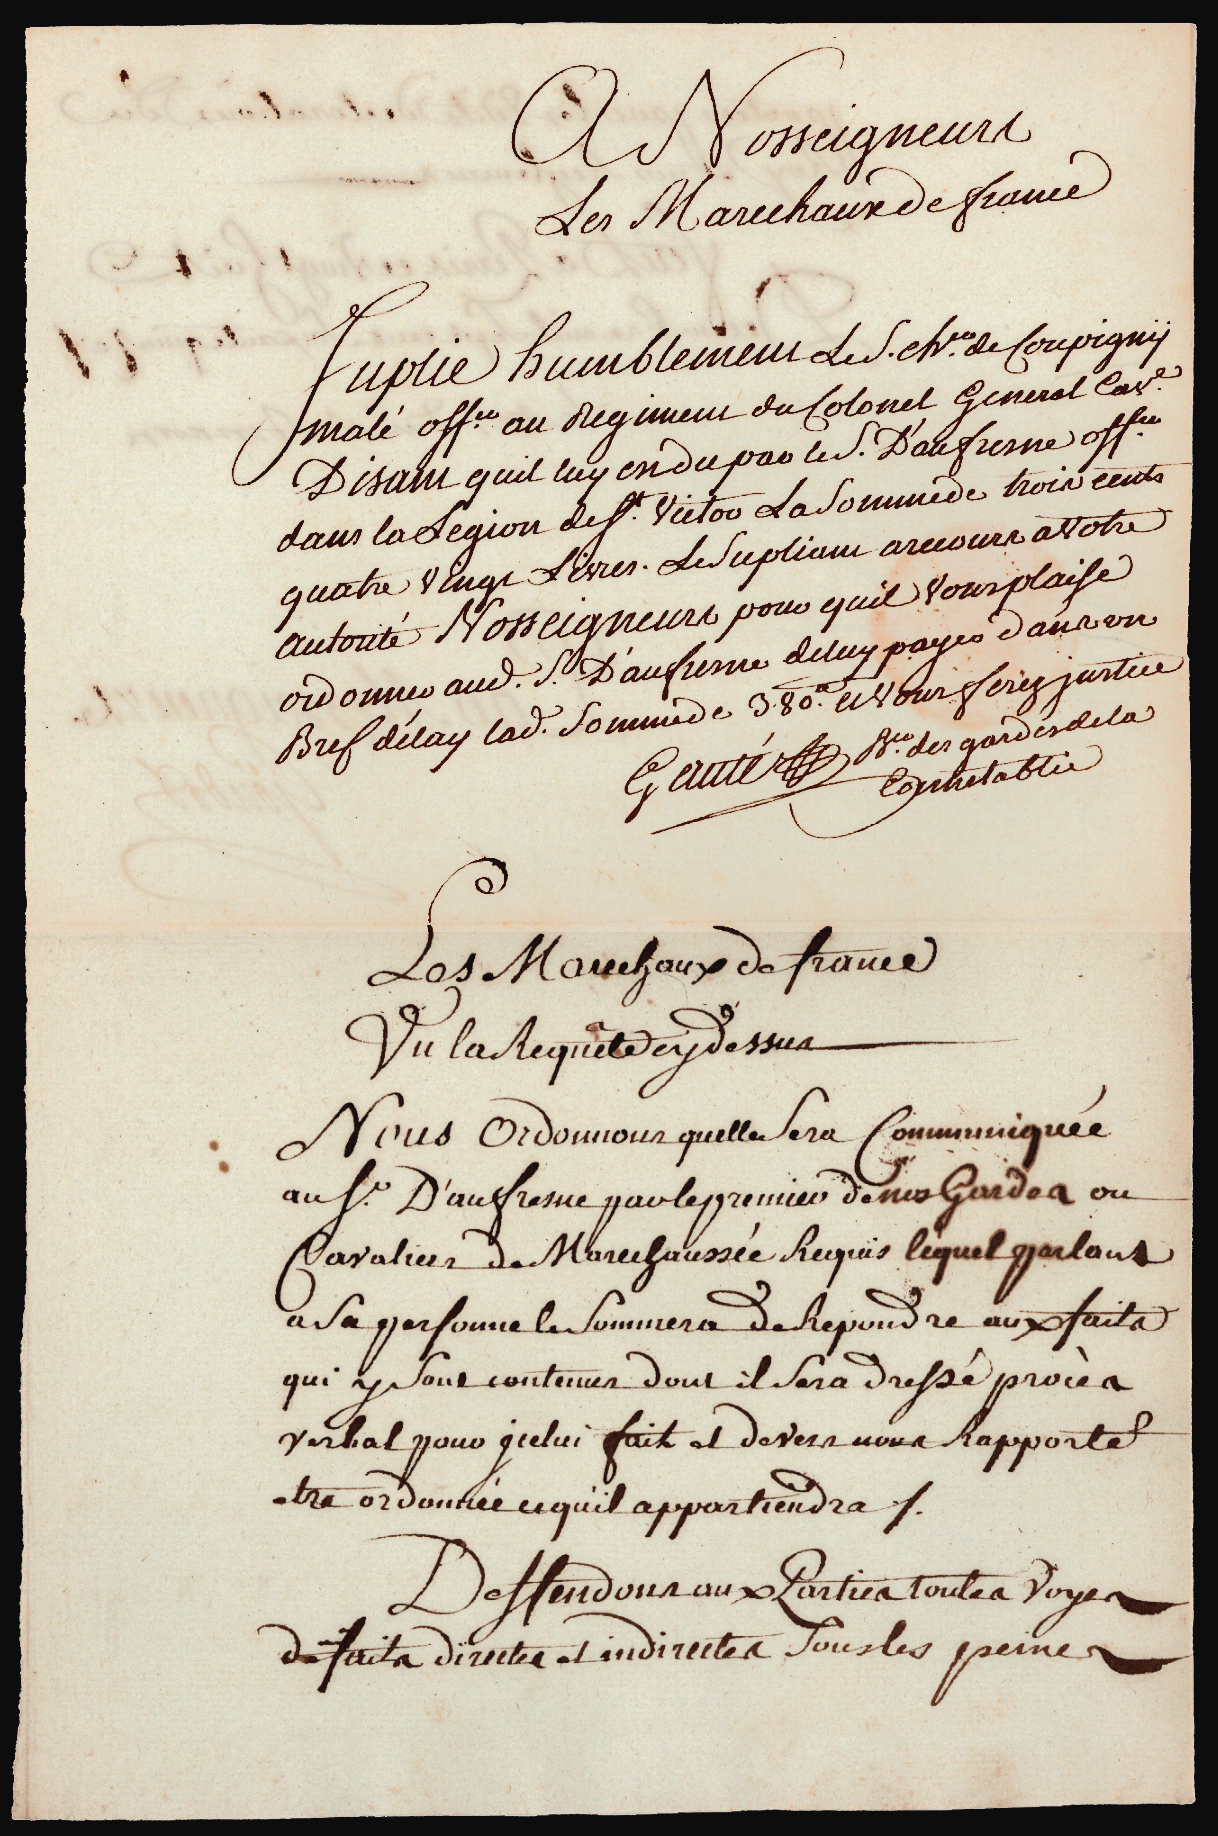 A Nosseigneurs
Les Marechaux de france
Suplie humblement Le S. chr. de Coupigny
malé offer. au Regiment du Colonel General Cavie.
Disant quil luy est du par le S. D'aufresne offer.
dans la Légion de St. Victor La Somme de trois cents
quatre Vingt Livres. Le Supliant a recours a Votre
autorité Nosseigneurs pour quil Vous plaise
ordonner aud. S. D'aufresne de luy payer dans un
Bref délay lad. Somme de 380.# et Vous ferez justice
Gauté Br. des gardes de la
Connetablie
Les Marechaux de france
Vu la Requête cy dessus
Nous Ordonnons quelle Sera Communiquée
au Sr. D'aufresne par le premier de nos Gardes ou
Cavaliers de Marechaussée Requis lequel parlant
a Sa personne le Sommera de Repondre aux faits
qui y Sont contenus dont il Sera dressé procès
verbal pour jcelui fait et devers nous Rapporté
etre ordonnée ce qu'il appartiendra /.
Deffendons aux Parties toutes Voyes
de faits directes et indirectes Sous les peines